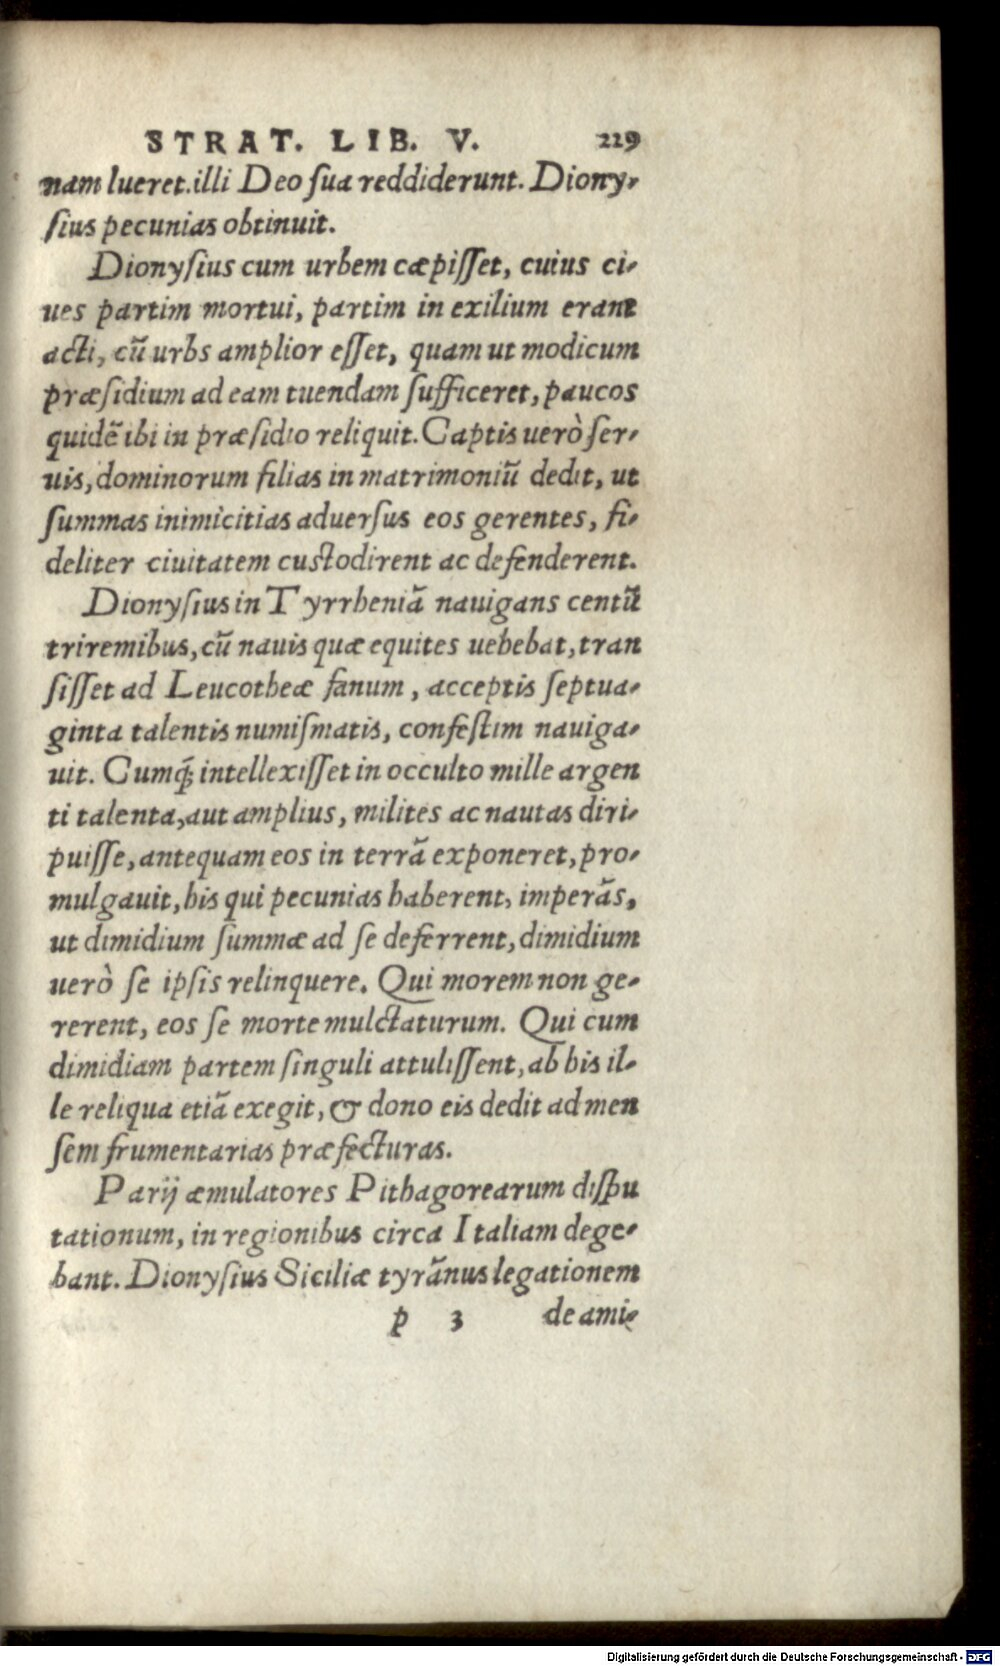 STRAT. LIB. V. 229
nam lueret. illi Deo ſua reddiderunt. Diony-
ſius pecunias obtinuit.
Dionyſius cum urbem cæpiſſet, cuius ci-
ues partim mortui, partim in exilium erant
acti, cũ urbs amplior eſſet, quam ut modicum
præſidium ad eam tuendam ſufficeret, paucos
quidẽ ibi in præſidio reliquit. Captis uerò ſer-
uis, dominorum filias in matrimoniũ dedit, ut
ſummas inimicitias aduerſus eos gerentes, fi-
deliter ciuitatem cuſtodirent ac defenderent.
Dionyſius in Tyrrheniã nauigans centũ
triremibus, cũ nauis quæ equites uehebat, tran
ſiſſet ad Leucotheæ fanum, acceptis ſeptua-
ginta talentis numiſmatis, confeſtim nauiga-
uit. Cumq́; intellexiſſet in occulto mille argen
ti talenta, aut amplius, milites ac nautas diri-
puiſſe, antequam eos in terrã exponeret, pro-
mulgauit, his qui pecunias haberent, imperãs,
ut dimidium ſummæ ad ſe deferrent, dimidium
uerò ſe ipſis relinquere. Qui morem non ge-
rerent, eos ſe morte mulctaturum. Qui cum
dimidiam partem ſinguli attuliſſent, ab his il-
le reliqua etiã exegit, & dono eis dedit ad men
ſem frumentarias præfecturas.
Parij æmulatores Pithagorearum diſpu
tationum, in regionibus circa Italiam dege-
bant. Dionyſius Siciliæ tyrãnus legationem
p 3 de ami-
Digitalisierung gefördert durch die Deutsche Forschungsgemeinschaft - DFG